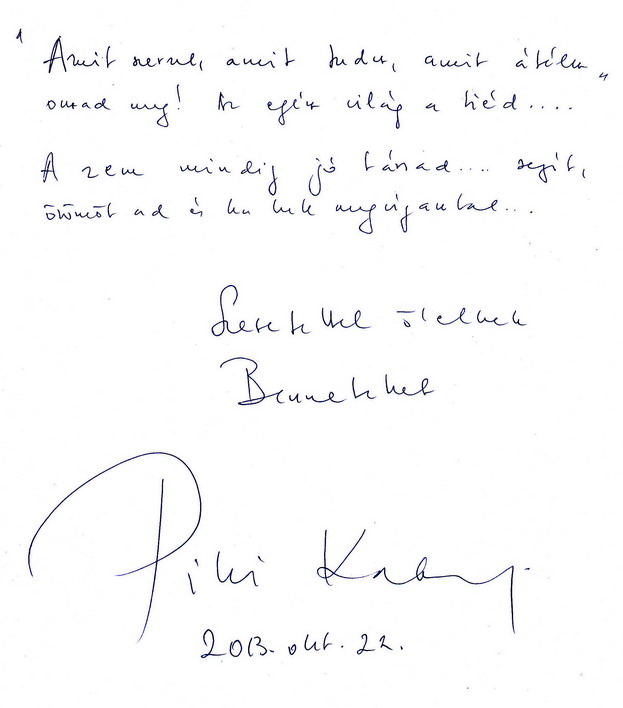 "Amit amit tudsz, amit átélsz"
oszad meg! Az egész világ a tiéd....
A zene mindig jó társad.... segít,
örömöt ad és ha kell megvigasztal...
Szeretettel ölellek
Benneteket
2013. okt. 22.